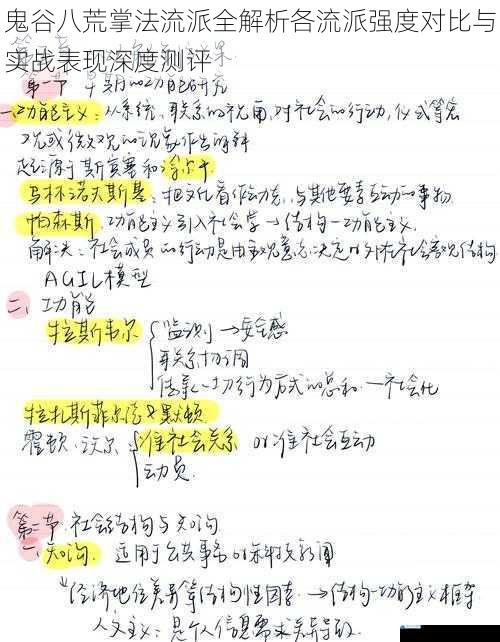 鬼谷八荒掌法流派全解析各流派强度对比与
实战表现深度测评
第一节 早期的功能研究
一、功能主义：从系统、联系的视角，对社会的行动、仪式等宏
观或微观的现象作出解释
起源于斯宾塞和涂尔干
马林诺夫斯基：把文化看作动态，与其他要素互动的事物
帕森斯，功能主义引入社会学→结构—功能主义
解决：社会成员的行动是由主观意志决定 外在社会客观结构
AGIL模型
二、功能
拉斯韦尔 监测→安全感
联系协调
传承(一切行为方式的总和—社会化
拉扎斯菲尔德及默顿
霍顿、沃尔 准社会关系 or准社会互动
动员
第二节 社会结构与知沟
一、知沟. 适用于公共事务or科技新闻
经济地位差异等结构性因素→结构—功能主义框架
人文主义：是个人信息需求差异导致